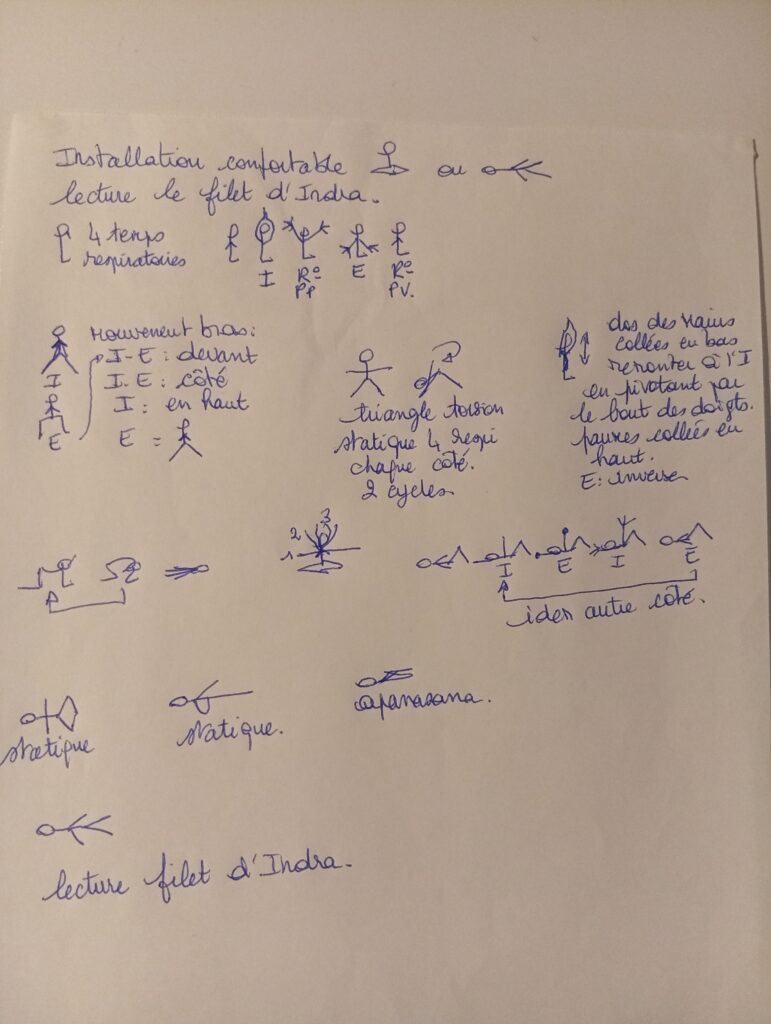 Installation confortable ou
lecture le filet d'Indra.
4 temps
respiratoires
I R° E R°
PP PV.
mouvement bras:
I-E: devant
I.E: côté
I: en haut
E =
I
E
triangle torsion
statique 4 respi
chaque côté.
2 cycles
dos des mains
collées en bas
remonter à l'I
en pivotant par
le bout des doigts.
paumes collées en
haut.
E: inverse
1 2 3
I E I E
idem autre côté.
statique
statique.
apanasana.
lecture filet d'Indra.